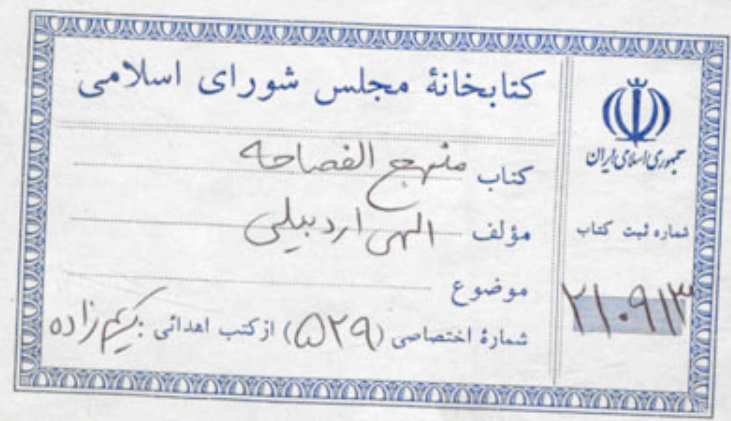 کتابخانهٔ مجلس شورای اسلامی
کتاب منهج الفصاحه
مؤلف الهی اردبیلی
موضوع
شمارهٔ اختصاصی (۵۲۹) از کتب اهدائی : کریم‌زاده
جمهوری اسلامی ایران
شماره ثبت کتاب
۲۱۰۹۱۳